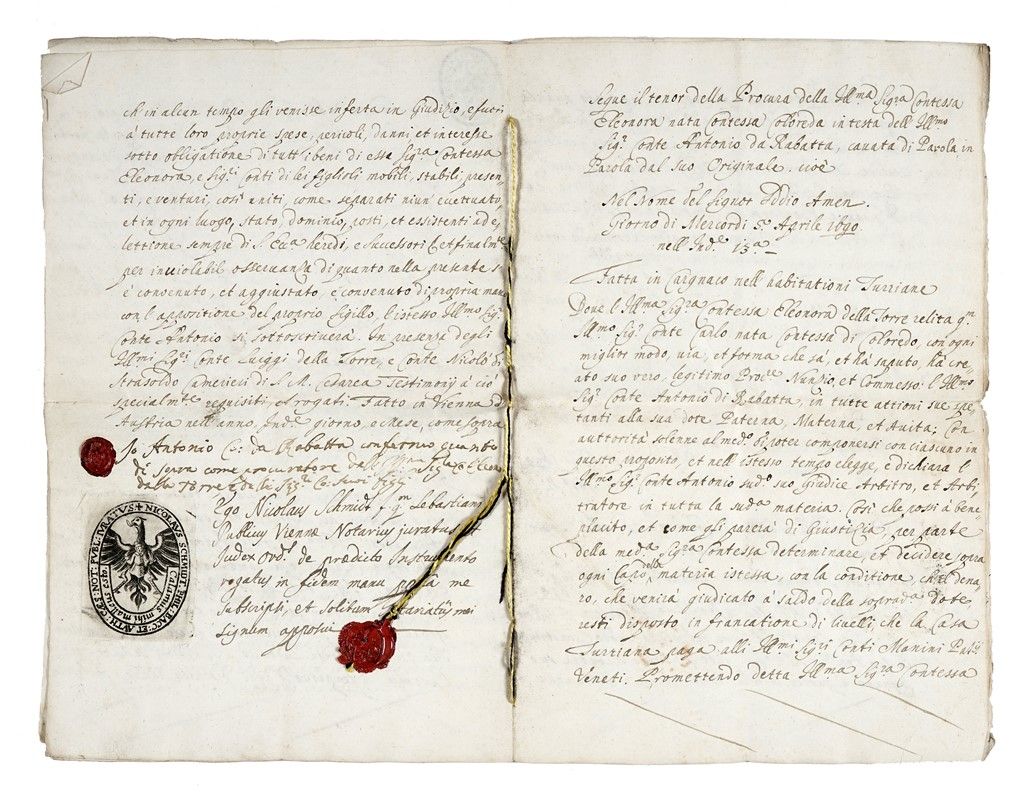 ch' in alcun tempo gli venisse inferta in Giudizio, e fuori
à tutte loro proprie spese, pericoli, danni et interesse
sotto obligatione di tutti i beni di essa Sig.ra Contessa
Eleonora, e Sig.ri Conti di lei figlioli mobili, stabili, presen-
ti, e venturi, così uniti, come separati niun eccettuato,
et in ogni luogo, stato, dominio, posti, et essistenti ad e-
lettione sempre di S. Ecc.a heredi, e successori Et final m.te
per inviolabil osservanza di quanto nella presente s'
è convenuto, et aggiustato, è convenuto di propria mano
con l'appositione del proprio sigillo, l'istesso Ill.mo Sig.r
Conte Antonio si sottoscriverà. In presenza degli
Ill.mi Sig.ri Conte Luiggi della Torre, e Conte Nicolò di
Strasoldo Camerieri di S. M. Cesarea Testimonij à ciò
special m.te requisiti, et rogati. Fatto in Vienna d'
Austria nell' anno, Ind.e giorno, e Mese, come sopra
Io Antonio Co: da Rabatta confermo quanto
di sopra come procuratore dalla Sig.ra Co: Eleon
dalla Torre
Ego Nicolaus Schmidt Sebastiani
Publicus Viennæ Notarius juratus
Judex Ord.s de prædicto Instrumento
rogatus in fidem manu me
subscripsi, et solitum Notariatus mei
signum apposui
NICOLAVS SCHMIDT PHIL. BACC: ET AVTH: CÆS: NOT: PVBL: IVRATVS
Calamus mihi malleus esto
Segue il tenor della Procura della Ill.ma Sig.ra Contessa
Eleonora nata Contessa Coloreda in testa dell' Ill.mo
Sig.r Conte Antonio da Rabatta, cavata di Parola in
Parola dal suo Originale. cioè
Nel Nome del Signor Iddio Amen.
Giorno di Mercordì 5.o Aprile 1690
nell' Ind.e 13.a
Fatta in Cargnaco nell' habitationi Turriane
Dove l' Ill.ma Sig.ra Contessa Eleonora della Torre relita q.m
Ill.mo Sig.r Conte Carlo nata Contessa di Coloredo, con ogni
miglior modo, via, et forma che sà, et hà saputo, hà cre-
ato suo vero, legitimo Proc.re Nunzio, et Commesso l' Ill.mo
Sig.r Conte Antonio di Rabatta, in tutte attioni sue spe-
tanti alla sua dote Paterna, Materna, et Avita; Con
auttorità solenne al med.o di poter componersi con ciascuno in
questo proposito, et nell' istesso tempo elegge, e dichiara l'
Ill.mo Sig.r Conte Antonio sud.o suo Giudice Arbitro, et Arbi-
tratore in tutta la sud.a materia. Così che possi à bene-
placito, et come gli parerà di Giustitia, per parte
della med.a Sig.ra Contessa determinare, et decidere sopra
ogni Capo della materia istessa, con la conditione, ch' il dena-
ro, che venirà giudicato à saldo della soprad.a Dote
resti disposto in francatione di livelli, che la Casa
Turriana paga alli Ill.mi Sig.ri Conti Manini Pat.ij
Veneti. Promettendo detta Ill.ma Sig.ra Contessa